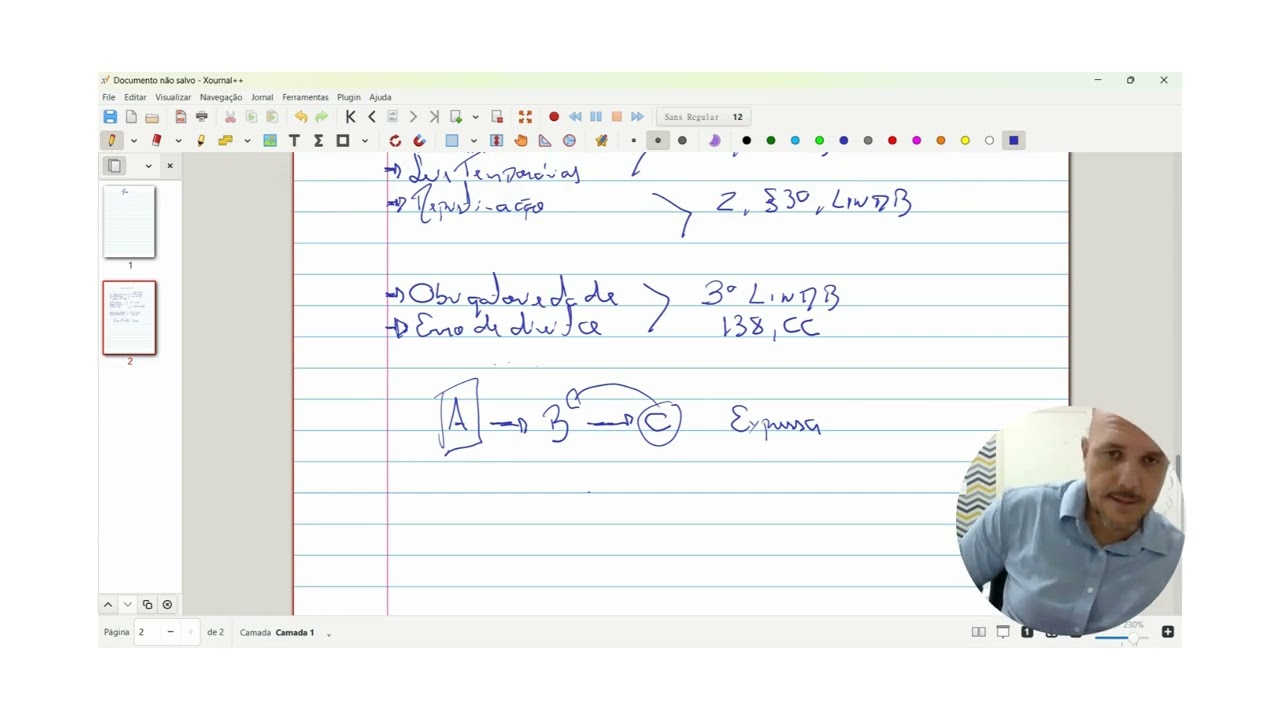 Documento não salvo - Xournal++
File Editar Visualizar Navegação Jornal Ferramentas Plugin Ajuda
Sans Regular 12
⇒ Leis Temporárias
⇒ Repristinação 2, §3º, LINDB
⇒ Obrigatoriedade 3º LINDB
⇒ Erro de direito 138, CC
A → B → C Expressa
1
2
Página 2 de 2 Camada Camada 1
230%